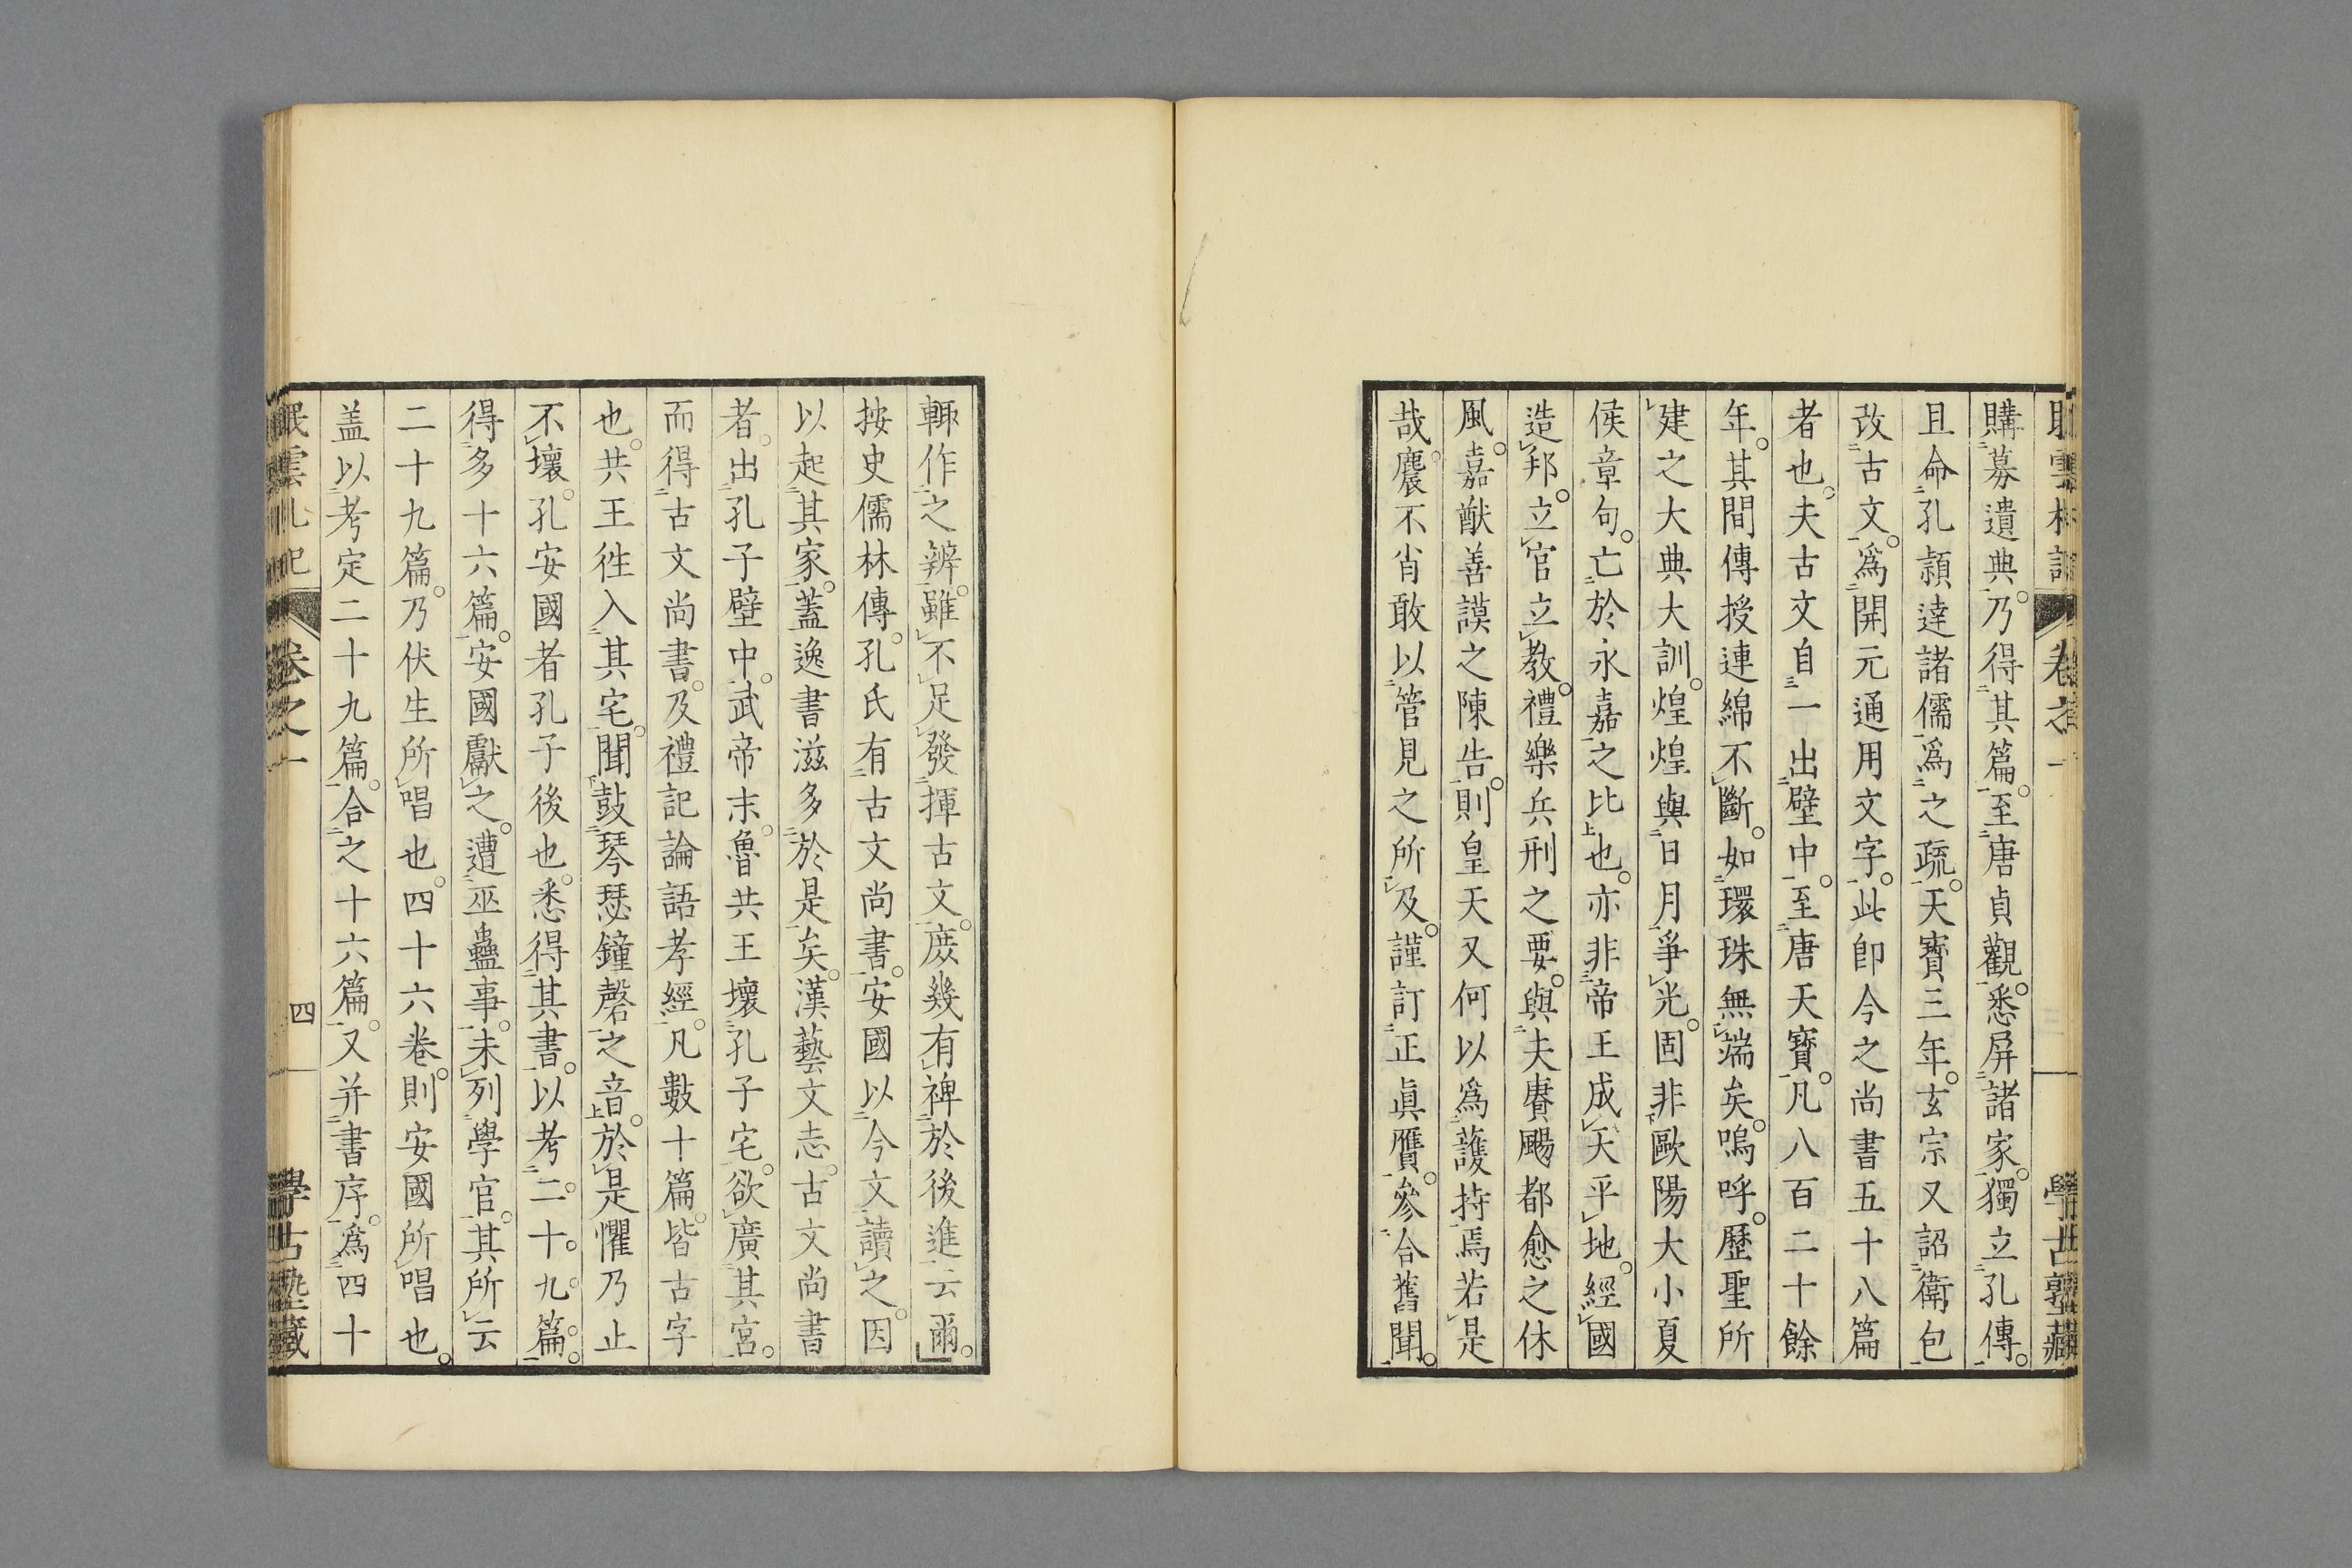 購募遺典。乃得其篇。至唐貞觀。悉屏諸家。獨立孔傳。
且命孔穎達諸儒爲之疏。天寶三年。玄宗又詔衛包
改古文。爲開元通用文字。此卽今之尚書五十八篇
者也。夫古文自一出壁中。至唐天寶。凡八百二十餘
年。其間傳授連綿不斷。如環珠無端矣。嗚呼。歷聖所
建之大典大訓。煌煌與日月爭光。固非歐陽大小夏
侯章句。亡於永嘉之比也。亦非帝王成天平地。經國
造邦。立官立教。禮樂兵刑之要。與夫賡颺都兪之休
風。嘉猷善謨之陳告。則皇天又何以爲護持焉若是
哉。麎不肖敢以管見之所及。謹訂正眞贋。參合舊聞。
輙作之辨。雖不足發揮古文。庶幾有裨於後進云爾。
按史儒林傳。孔氏有古文尚書。安國以今文讀之。因
以起其家。蓋逸書滋多於是矣。漢藝文志。古文尚書
者。出孔子壁中。武帝末。魯共王壞孔子宅。欲廣其宮。
而得古文尚書。及禮記論語孝經。凡數十篇。皆古字
也。共王徃入其宅。聞鼓琴瑟鐘磬之音。於是懼乃止
不壞。孔安國者孔子後也。悉得其書。以考二十九篇。
得多十六篇。安國獻之。遭巫蠱事。未列學官。其所云
二十九篇。乃伏生所唱也。四十六卷。則安國所唱也。
盖以考定二十九篇。合之十六篇。又并書序。爲四十
卷之一 四